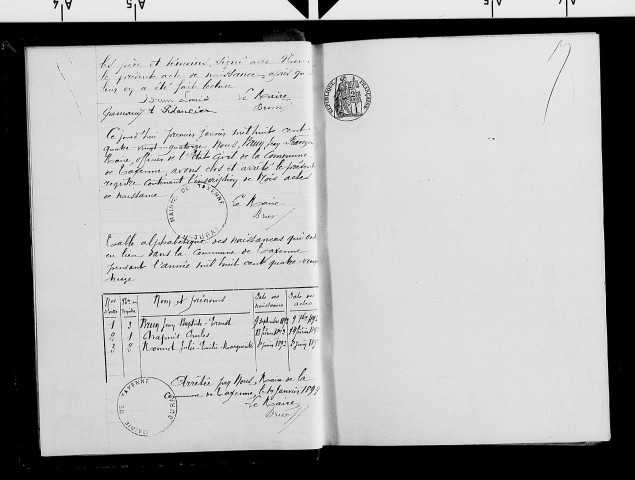 les père et témoins, signé avec Nous
le présent acte de naissance, après que
leur en a été fait lecture
Brun Louis Le Maire
Brun
Ce jourd'hui premier Janvier mil huit cent
quatre-vingt-quatorze Nous, Brun
Maire, officier de l'Etat Civil de la Commune
de Taxenne, avons clos et arrêté le présent
registre contenant l'inscription de trois actes
de naissance
Le Maire
Brun
MAIRIE DE TAXENNE
JURA
Table alphabétique des naissances qui ont
eu lieu dans la Commune de Taxenne
pendant l'année mil huit cent quatre-vingt
treize
Nos Nos du Noms et prénoms Date des Date des
d'ordre registre naissances actes
1 3 Brun Jean Baptiste Ernest 9 septembre
2 1 Chapuis Charles 18 février 1893 19 février
3 2 Monnot Julie Emilie Marguerite juin 189 juin 189
Arrêtée par Nous, Maire de la
Commune de Taxenne, le Janvier 1894
Le Maire
Brun
MAIRIE DE TAXENNE
REPUBLIQUE FRANÇAISE